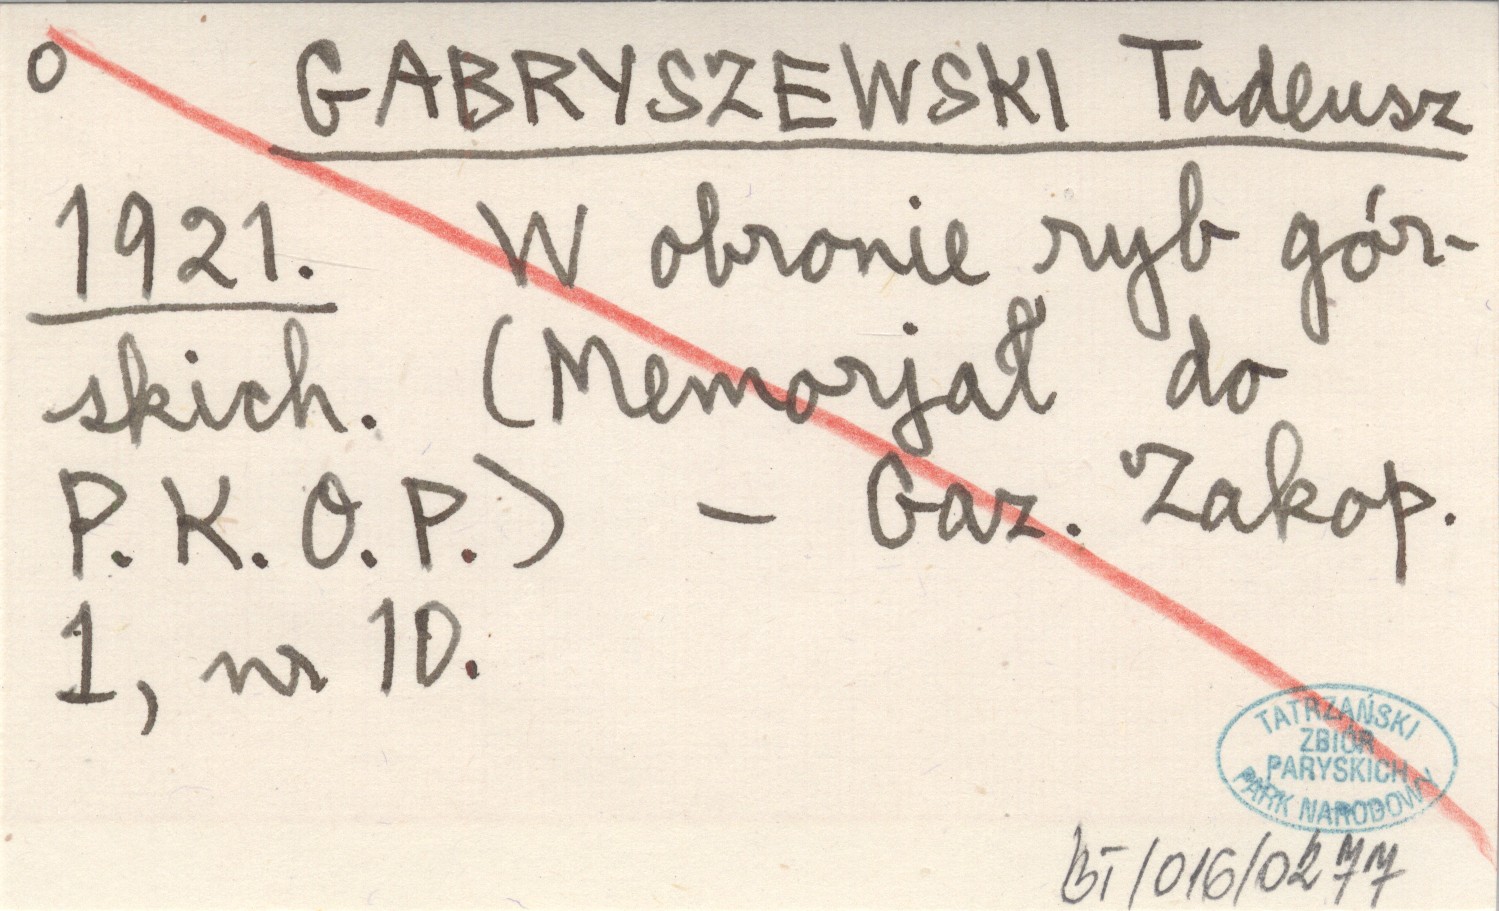 o GABRYSZEWSKI Tadeusz
1921. W obronie ryb gór-
skich. (Memorjał do
P.K.O.P.) — Gaz. Zakop.
1, nr 10.
TATRZAŃSKI
ZBIÓR
PARYSKICH
PARK NARODOWY
BT/016/0277